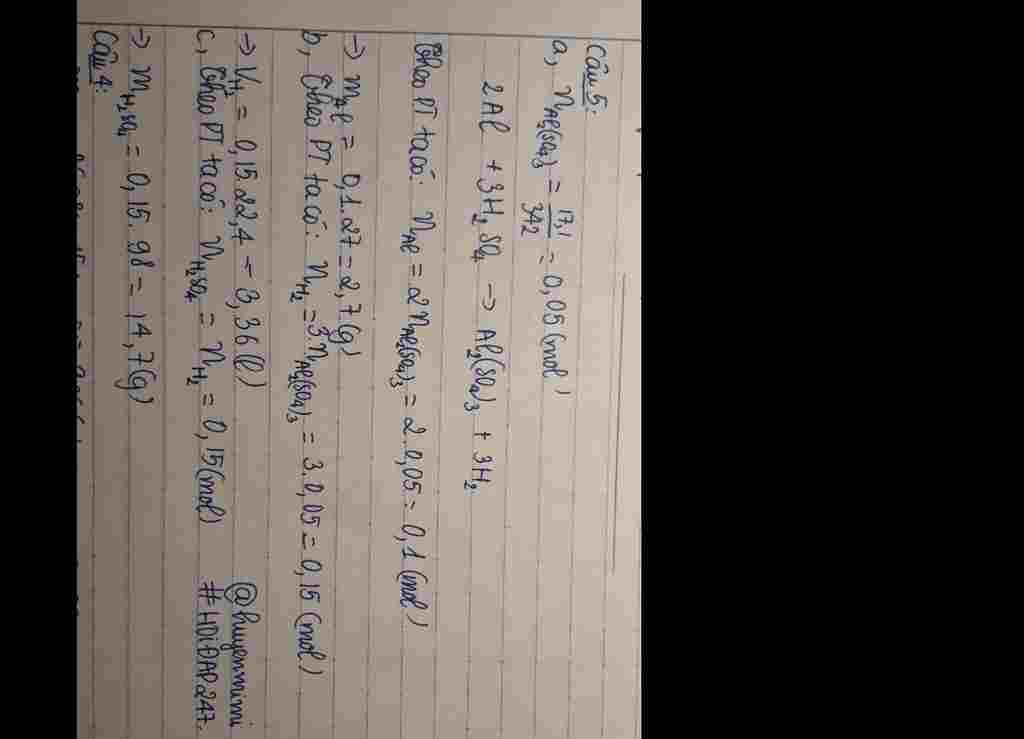 Câu 5:
a, n Al₂(SO₄)₃ = 17,1/342 = 0,05 (mol)
2Al + 3H₂SO₄ → Al₂(SO₄)₃ + 3H₂
Theo PT ta có: n Al = 2n Al₂(SO₄)₃ = 2.0,05 = 0,1 (mol)
→ m Al = 0,1.27 = 2,7 (g)
b, Theo PT ta có: n H₂ = 3n Al₂(SO₄)₃ = 3.0,05 = 0,15 (mol)
→ V H₂ = 0,15.22,4 = 3,36 (l) @huyenmimi
c, Theo PT ta có: n H₂SO₄ = n H₂ = 0,15 (mol) #HOIĐAP247.
→ m H₂SO₄ = 0,15.98 = 14,7 (g)
Câu 4: